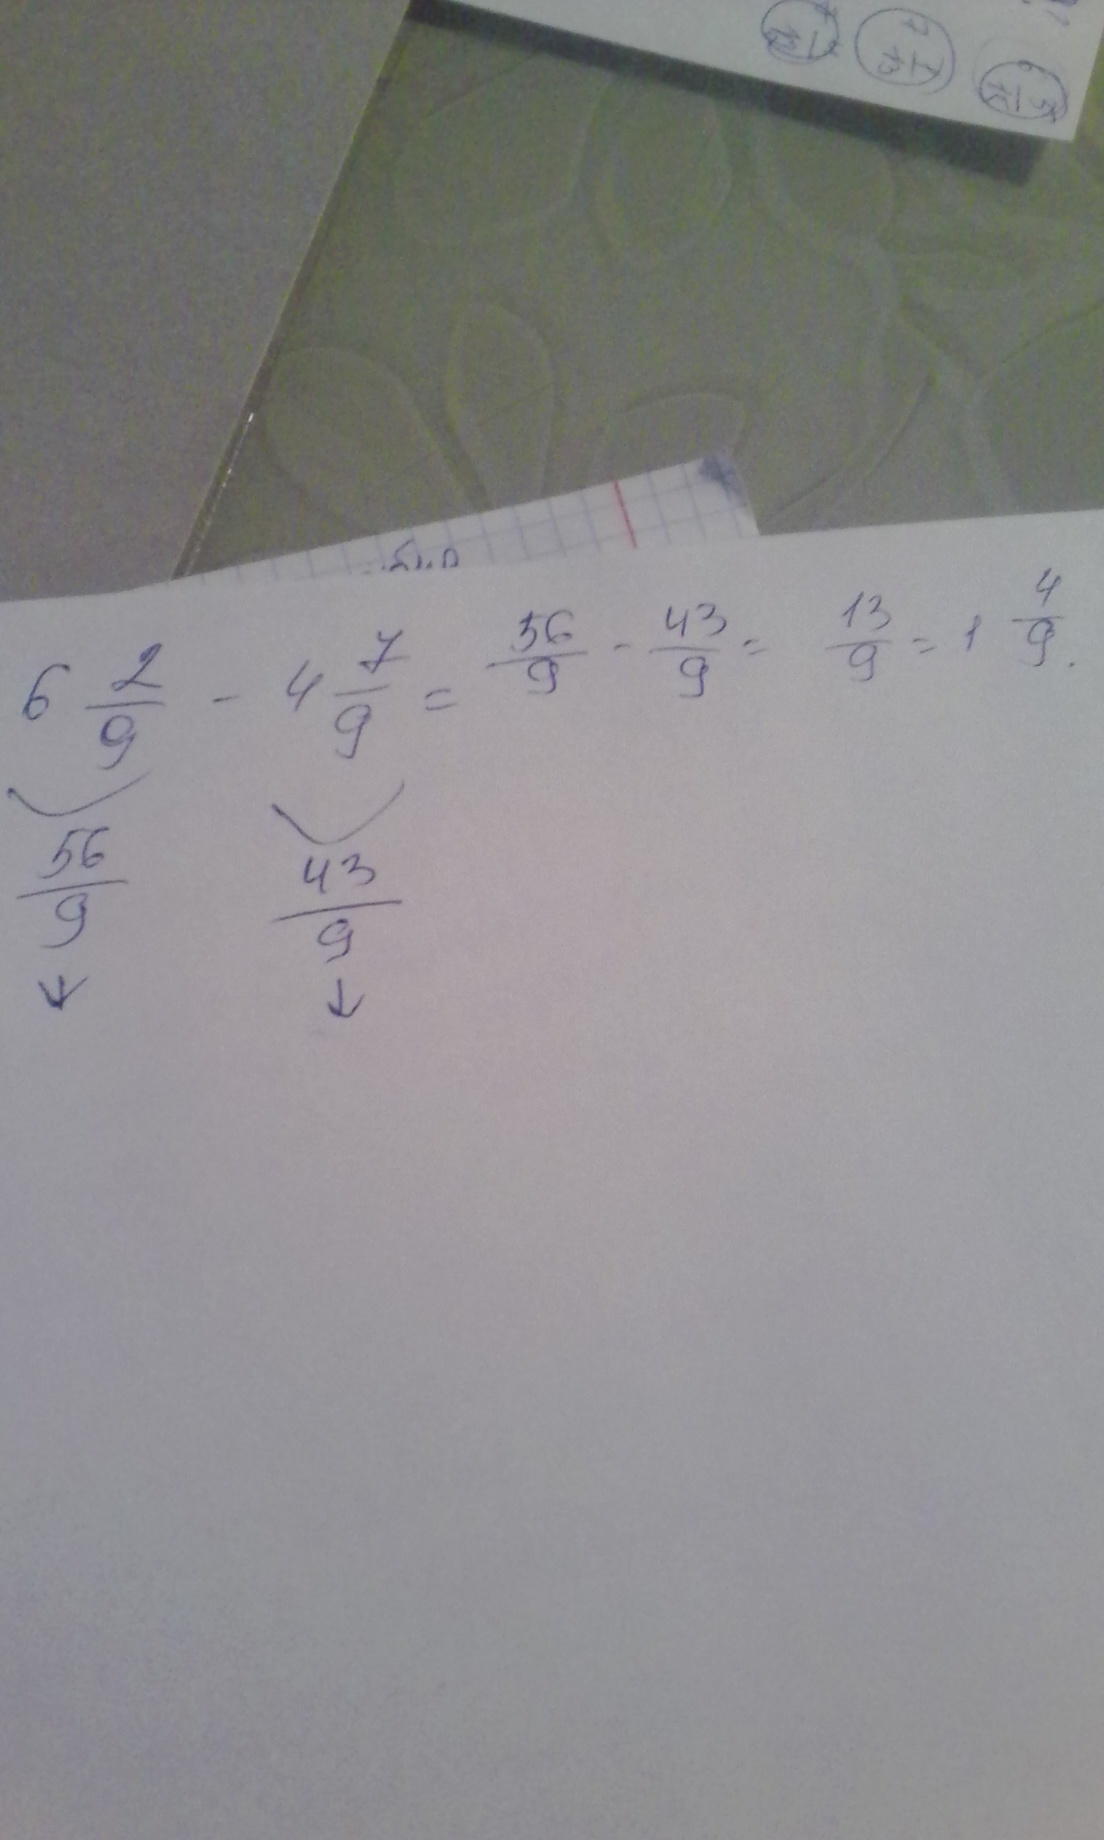 6 2/9 - 4 7/9 = 56/9 - 43/9 = 13/9 = 1 4/9.
56/9 43/9
↓ ↓